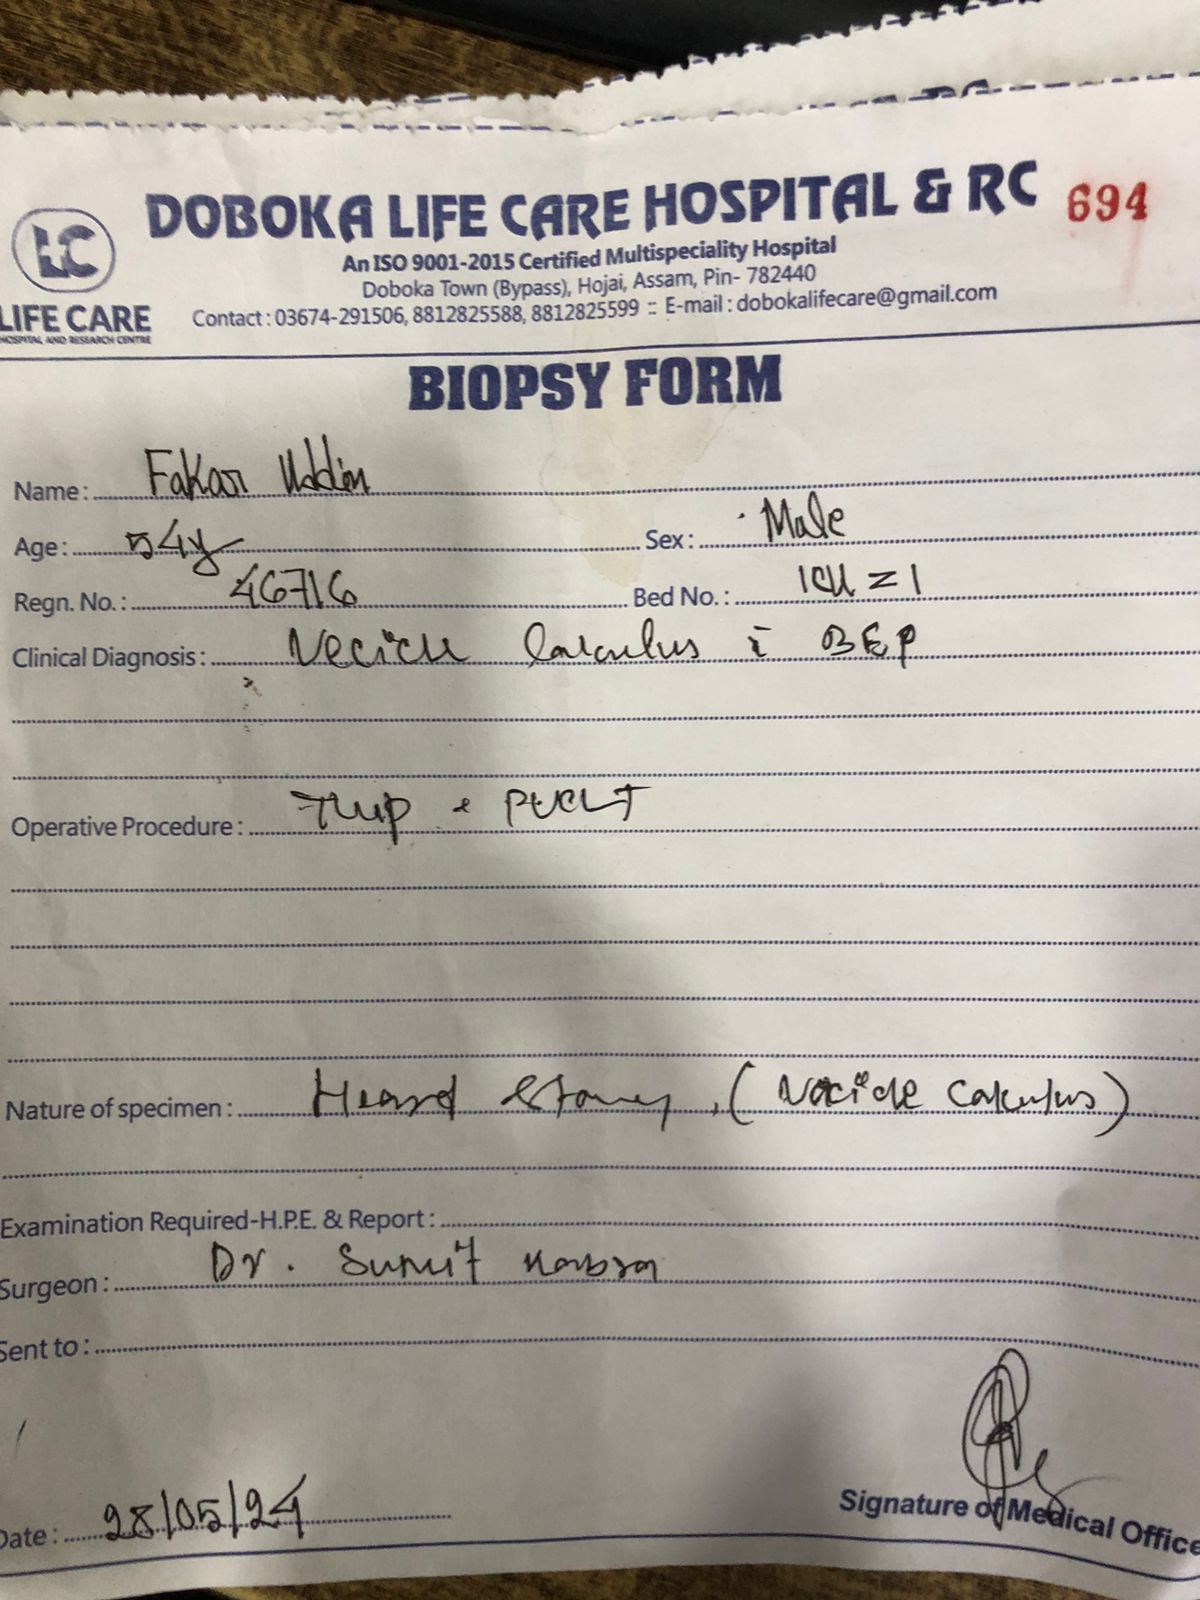 DOBOKA LIFE CARE HOSPITAL & RC 694
An ISO 9001-2015 Certified Multispeciality Hospital
Doboka Town (Bypass), Hojai, Assam, Pin- 782440
Contact : 03674-291506, 8812825588, 8812825599 :: E-mail : dobokalifecare@gmail.com
LC
LIFE CARE
HOSPITAL AND RESEARCH CENTRE
BIOPSY FORM
Name : Fakar Uddin
Age : 54y Sex : Male
Regn. No. : 46716 Bed No. : ICU = 1
Clinical Diagnosis : Calculus BEP
Operative Procedure :
Nature of specimen : (Calculus)
Examination Required-H.P.E. & Report :
Surgeon : Dr. Sumit
Sent to :
Date : 28/05/24
Signature of Medical Office